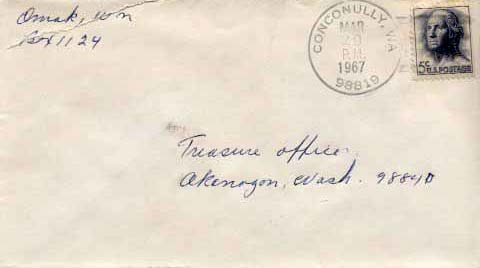 Omak, Wn
Box 1124
CONCONULLY, WA
MAR
P.M.
1967
98819
5¢
U.S. POSTAGE
Treasure office
Okanogon, Wash. 98840